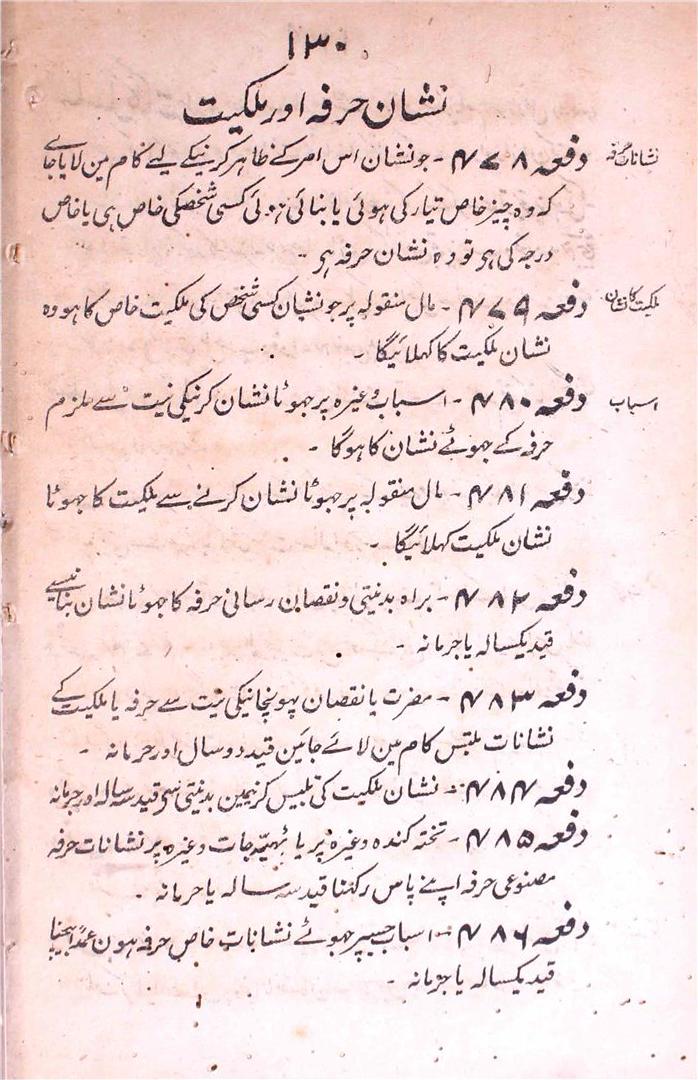 ۱۳۰
نشان حرفہ اور ملکیت
نشانات حرفہ
دفعہ ۴۷۸ - جو نشان اس امر کے ظاہر کرنیکے لیے کام مین لایا جاے
کہ وہ چیز خاص تیار کی ہوئی یا بنائی ہوئی کسی شخصکی خاص ہی یا خاص
درجہ کی ہی تو وہ نشان حرفہ ہی -
ملکیت کا نشان
دفعہ ۴۷۹ - مال منقولہ پر جو نشان کسی شخص کی ملکیت خاص کا ہو وہ
نشان ملکیت کا کہلائیگا -
اسباب
دفعہ ۴۸۰ - اسباب وغیرہ پر جھوٹا نشان کرنیکی نیت سے ملزم
حرفہ کے جھوٹے نشان کا ہوگا -
دفعہ ۴۸۱ - مال منقولہ پر جھوٹا نشان کرنے سے ملکیت کا جھوٹا
نشان ملکیت کہلائیگا -
دفعہ ۴۸۲ - براہ بدنیتی و نقصان رسانی حرفہ کا جھوٹا نشان بنانیسے
قید یکسالہ یا جرمانہ -
دفعہ ۴۸۳ - مضرت یا نقصان پہونچانیکی نیت سے حرفہ یا ملکیت کے
نشانات ملتبس کام مین لائے جائین قید دو سال اور جرمانہ -
دفعہ ۴۸۴ - نشان ملکیت کی تلبیس کرنیمین بدنیتی سی قید سہ سالہ اور جرمانہ
دفعہ ۴۸۵ - تختہ کندہ وغیرہ پر یا ٹھپہ جات وغیرہ پر نشانات حرفہ
مصنوعی حرفہ اپنے پاس رکھنا قید سہ سالہ یا جرمانہ -
دفعہ ۴۸۶ - اسباب جسپر جھوٹے نشانات خاص حرفہ ہون عمداً بیچنا
قید یکسالہ یا جرمانہ -